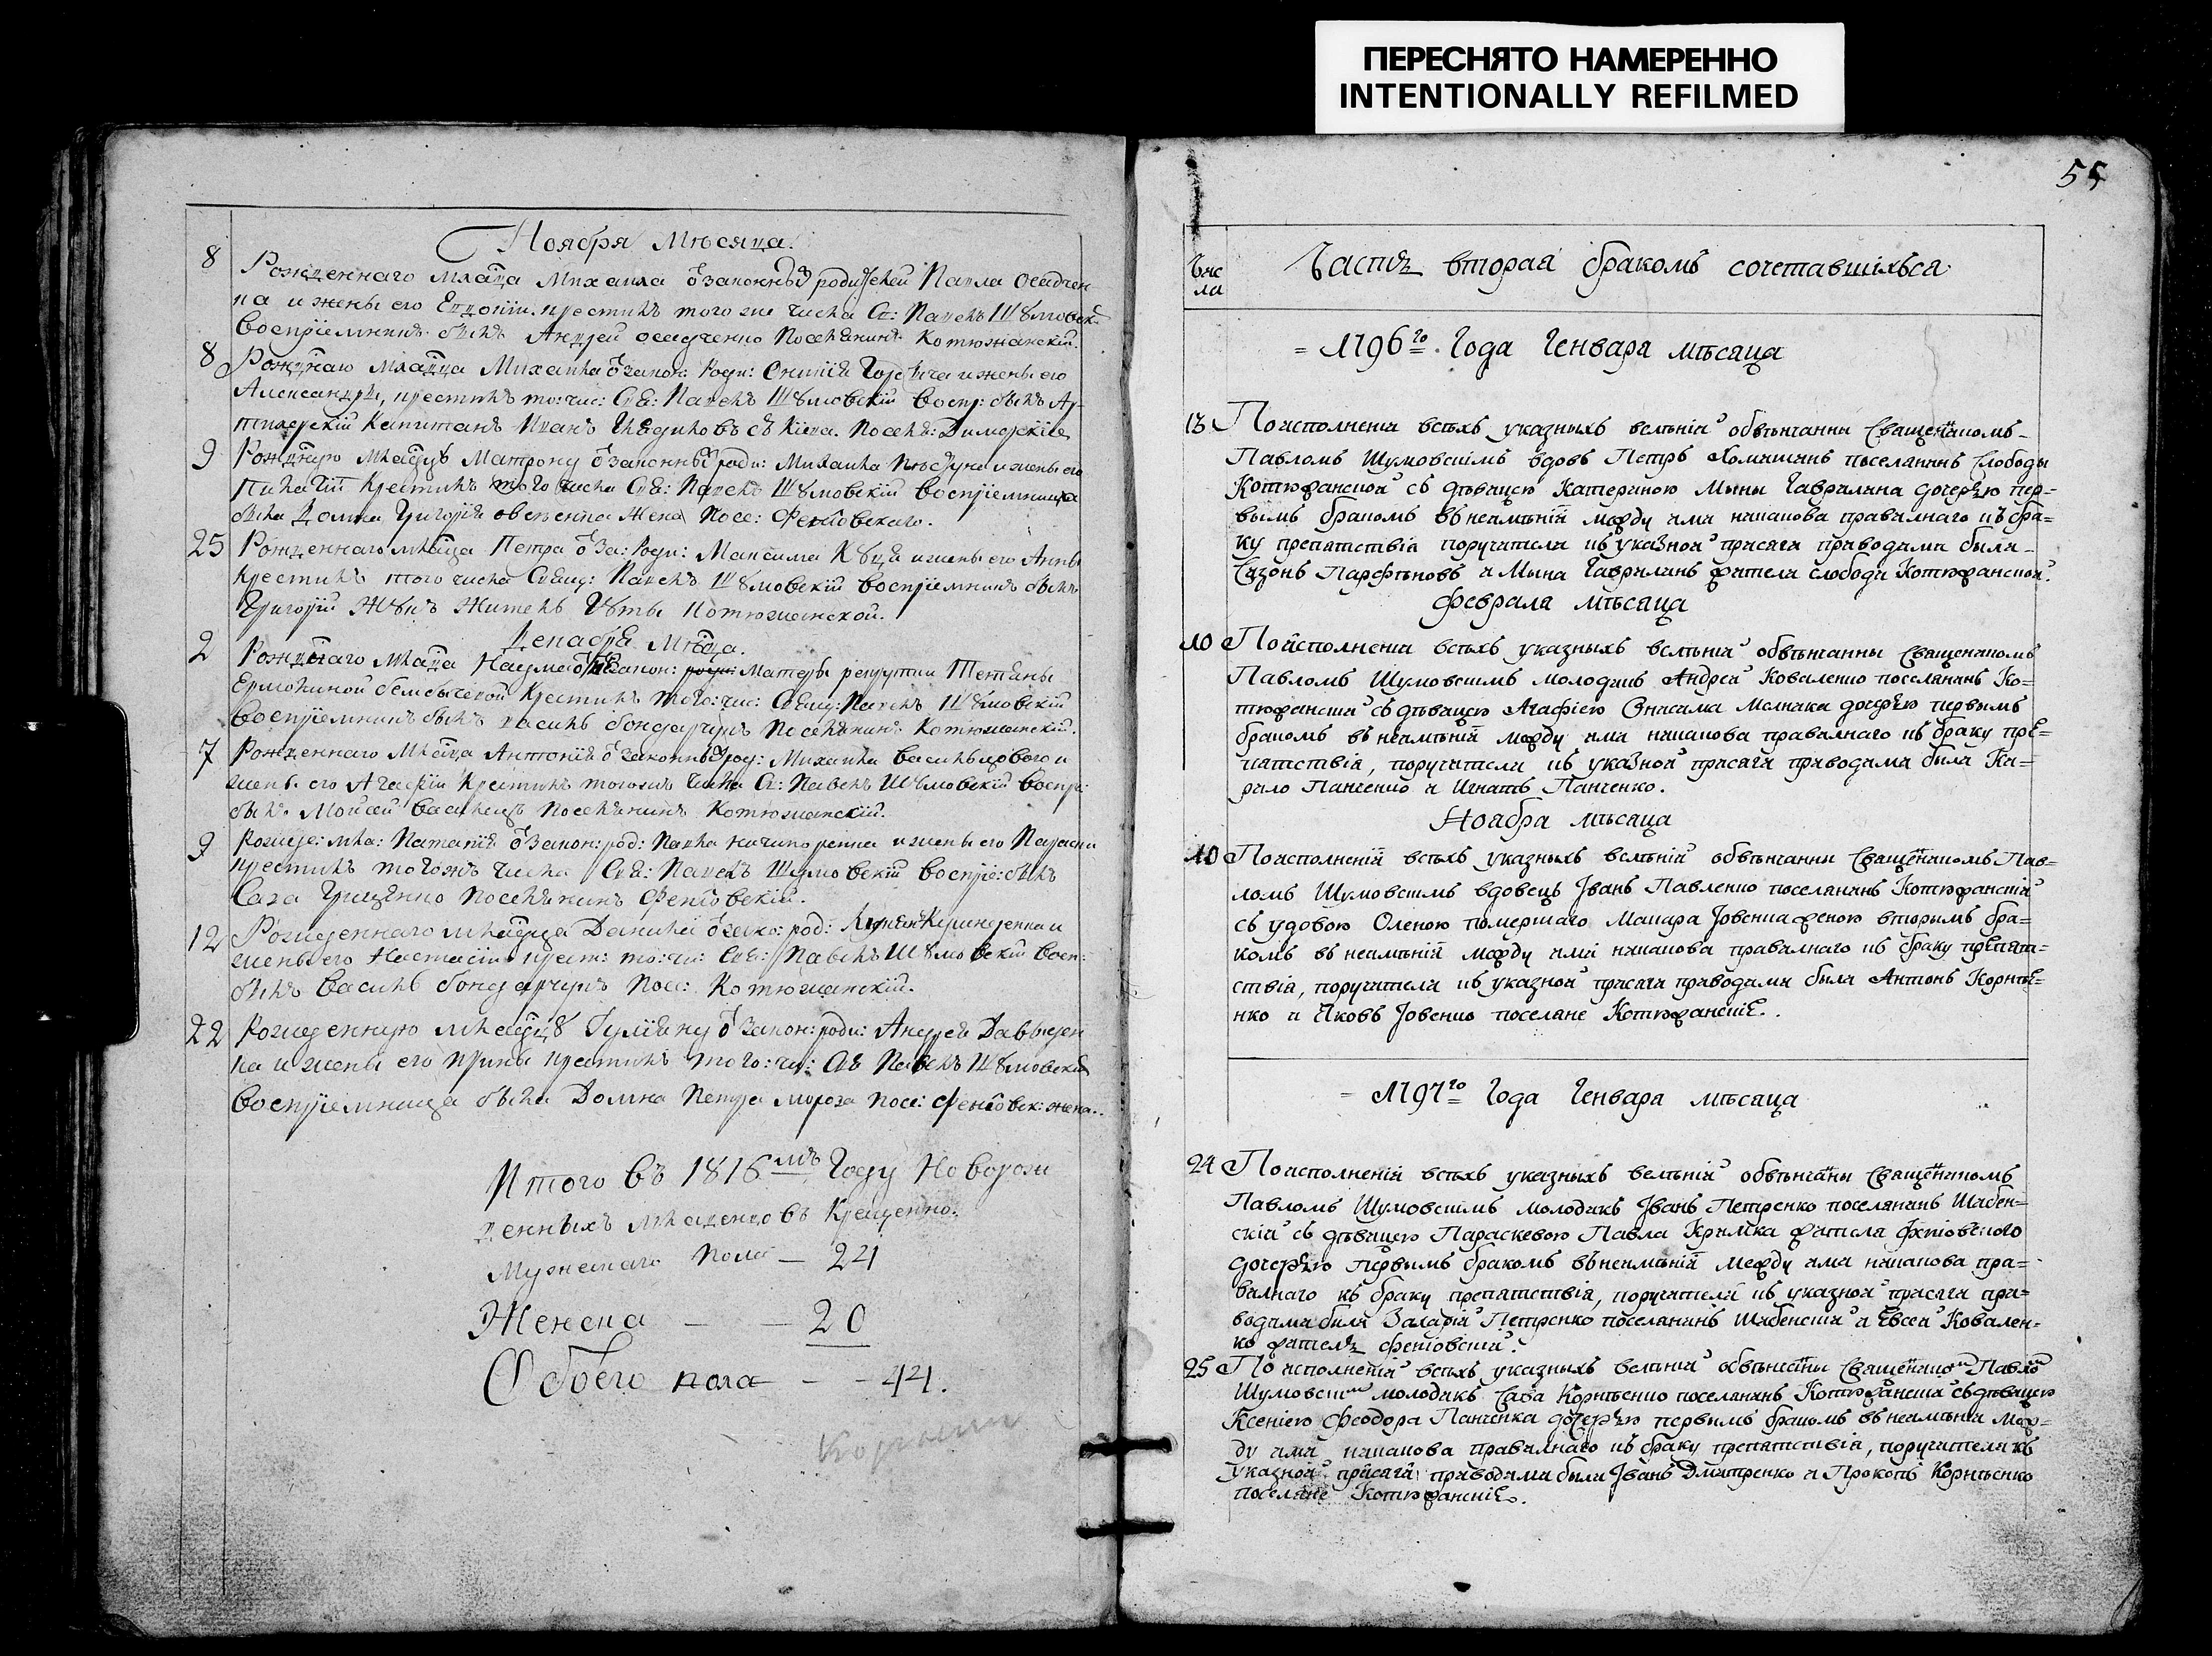 ПЕРЕСНЯТО НАМЕРЕННО
INTENTIONALLY REFILMED
Ноября Мѣсяца.
8 Рожденнаго млада Михаила ѿ законныхъ родителей Павла Осадчен
ка и жены его Евдокіи. крестилъ того же числа Св: Павелъ Шꙋмовскій
Воспріемникъ былъ Андрей осадченко Поселянинъ Котюжанскій.
8 млада Михаила ѿ закон: Роди: и жены его
Александры, крестилъ то: чис: Свя: Павелъ Шꙋмовскій Воспр: былъ Ар-
тилерскій Капитанъ Иванъ съ Кіева. Поселя:
9 младу Матрону ѿ законны роди: Михаила и жены его
Крестилъ того числа Свя: Павелъ Шꙋмовскій Воспріемница
была Домна Григорія жена Посе:
25 Рожденнаго млада Петра ѿ За: Роди: Максима и жены его Анны
Крестилъ того числа Свящ: Павелъ Шꙋмовскій воспріемникъ былъ
Григорій Жꙋкъ Житель Котюжанской.
Декабря Мѣца.
2 млада закон: Матери Тетяны
Крестилъ того: чис: Свящ: Павелъ Шꙋмовскій
воспріемникъ былъ василь бондарчукъ Поселянинъ Котюжанскій.
7 Рожденнаго Млада Антонія ѿ законны род: Михаила и
жены его Агафіи Крестилъ тогожъ числа Св: Павелъ Шꙋмовскій воспр:
былъ Мойсей Василецъ Поселянинъ Котюжанскій.
9 Рожде: мла: ѿ Закон: род: Павла и жены его
крестилъ тогожъ числа Свя: Павелъ Шумовскій воспріе: былъ
Сава Грищенко Поселянинъ
12 Рожденнаго млада Данила ѿ зако: род: и
жены его Настасіи крест: то: чи: Свя: Павелъ Шꙋмовскій восп:
былъ Василь бондарчукъ Посе: Котюжанскій.
22 Рожденную младу Гуліяну ѿ Закон: роди: Андрея Давиден
ка и жены его Ирины крестилъ того: чи: Свя Павелъ Шꙋмовскій
Воспріемница была Домна Петра мороза посе: жена.
Итого въ 1816мъ Году Новорож
денныхъ младенцовъ Крещенно.
Мужескаго Пола — 24
Женска — — 20
Обоего пола — — 44.
55
Чис
ла
Часть втораѧ бракомъ сочетавшіхься
= 1796го Года Генвара мѣсаца
13 По исполнении всѣхъ указныхъ велѣній обвѣнчанны Сващенникомъ
Павломъ Шумовскімъ вдовъ Петръ поселанинъ Слободы
Котюжанской съ дѣвицею Катериною Мины Гаврилина дочерью пер=
вымъ бракомъ въ неимѣніи между ими никакова правилнаго къ бра=
ку препатствіа поручители къ указной присаги приводими были
Сазонъ Парфѣновъ и Мина Гаврилинъ жители слободи Котюжанской.
Феврала мѣсаца
10 По исполнении всѣхъ указныхъ велѣній обвѣнчанны Сващенникомъ
Павломъ Шумовскімъ молодикъ Андрей Коваленко поселанинъ Ко=
тюжанскій съ дѣвицею Агафіею Онисима Мелника дочерью первымъ
бракомъ въ неимѣніи между ими никакова правилнаго къ браку пре=
патствіа, поручители къ указной присаги приводими били Ки=
рило Панченко и Игнатъ Панченко.
Ноабра мѣсаца
10 По исполненіи всѣхъ указныхъ велѣній обвѣнчанни Сващенникомъ Пав=
ломъ Шумовскімъ вдовецъ Іванъ Павленко поселанинъ Котюжанскій
съ удовою Оленою помершаго Макара Іовенка женою вторымъ бра=
комъ въ неимѣніи между ими никакова правилнаго къ браку препат=
ствіа, поручители къ указной присаги приводими были Антонъ Корнѣе=
нко и Яковъ Іовенко поселане Котюжанскіе.
= 1797го Года Генвара мѣсаца
24 По исполненіи всѣхъ указныхъ велѣній обвѣнчаны Сващенникомъ
Павломъ Шумовскімъ молодикъ Іванъ Петренко поселанинъ Шабен=
скій съ дѣвицею Параскевою Павла жителя
дочерью первымъ бракомъ въ неимѣніи между ими никакова пра=
вилнаго къ браку препатствіа, поручители къ указной присаги при=
водими били Захарій Петренко поселанинъ Шабенскій и Евсей Ковален=
ко житель
25 По исполненіи всѣхъ указныхъ велѣній обвѣнчаны Сващенником Павлом
Шумовским молодикъ Сава Корнѣенко поселанинъ Котюжанскій съ дѣвицею
Ксеніею Феодора Панченка дочерью первымъ бракомъ въ неимѣніи меж=
ду ими никакова правилнаго къ браку препатствіа, поручители къ
указной присаги приводими были Іванъ Дмитренко и Прокопъ Корнѣенко
поселяне Котюжанскіе.